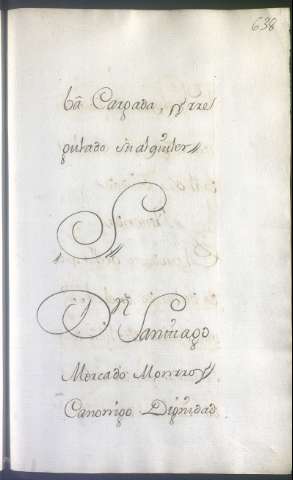 638
Cargada, y rre
putado su alquiler
S
Dn
Santiago
Mercado Monrroy
Canonigo Dignidad